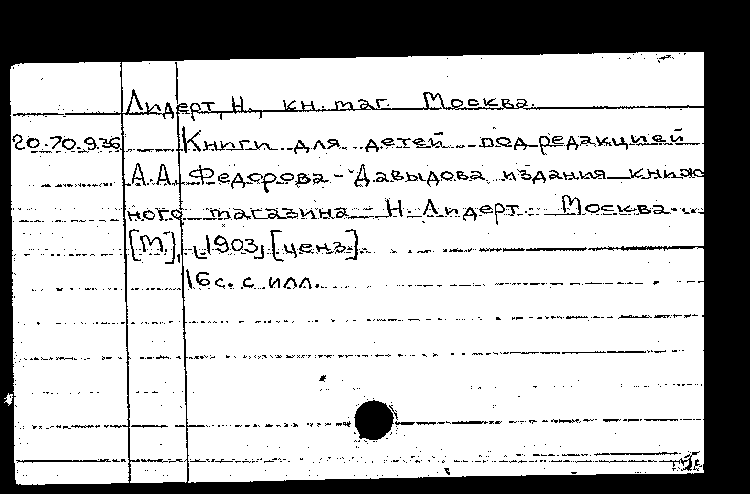 Лидерт, Н., кн. маг. Москва.
20.70.936 Книги для детей под редакцией
А.А. Федорова-Давыдова издания книж
ного магазина - Н. Лидерт. Москва.
[М], 1903, [ценз.].
16 с. с илл.